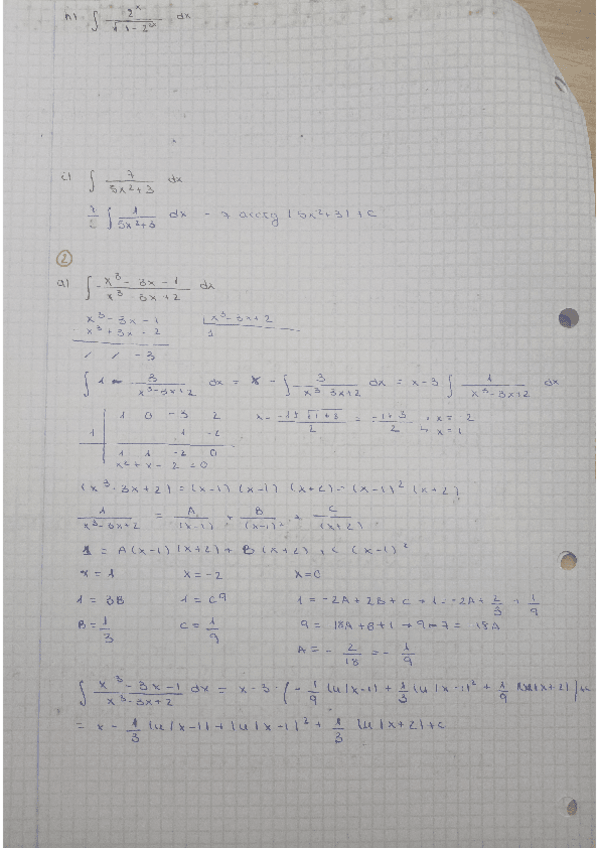 h) ∫ 2^x / √(1-2^2x) dx
i) ∫ 7 / (5x²+3) dx
∫ 1 / (5x²+3) dx = 7 arctg |5x²+3| + C
②
a) ∫ (x³ - 3x - 1) / (x³ - 3x + 2) dx
x³ - 3x - 1 | x³ - 3x + 2
x³ + 3x - 2 1
/ / -3
∫ 1 - 3 / (x³-3x+2) dx = x - ∫ 3 / (x³ 3x+2) dx = x - 3 ∫ 1 / (x³-3x+2) dx
1 0 -3 2 x = (-1 ± √(1+8)) / 2 = (-1 ± 3) / 2 x = -2
1 1 -2 x = 1
1 1 -2 0
x² + x - 2 = 0
(x³ - 3x + 2) = (x-1) (x-1) (x+2) = (x-1)² (x+2)
1 / (x³-3x+2) = A / (x-1) + B / (x-1)² + C / (x+2)
1 = A(x-1)(x+2) + B(x+2) + C(x-1)²
x = 1 x = -2 x = 0
1 = 3B 1 = C9 1 = -2A + 2B + C → 1 = -2A + 2/3 + 1/9
B = 1/3 C = 1/9 9 = 18A + 6 + 1 → 9 - 7 = 18A
A = - 2/18 = - 1/9
∫ (x³ - 3x - 1) / (x³ - 3x + 2) dx = x - 3 · (- 1/9 ln|x-1| + 1/3 ln|x-1|² + 1/9 ln|x+2|) + C
= x - 1/3 ln|x-1| + ln|x-1|² + 1/3 ln|x+2| + C